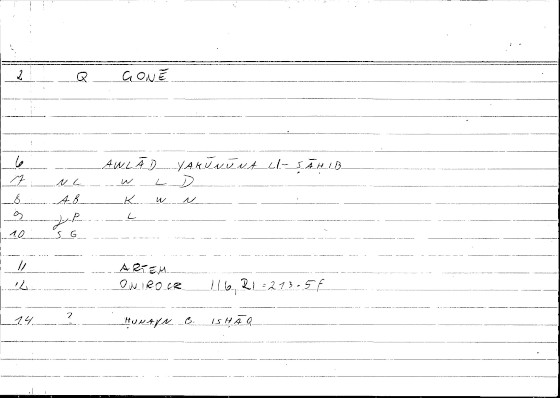 2 Q GONĒ
6 AWLĀD YAKŪNŪNA LI-ṢĀḤIB
7 NL W L D
8 AB K W N
9 JP L
10 SG
11 ARTEM
12 ONIROCR 116, 21 = 213.5F
14 ? ḤUNAYN B. ISḤĀQ